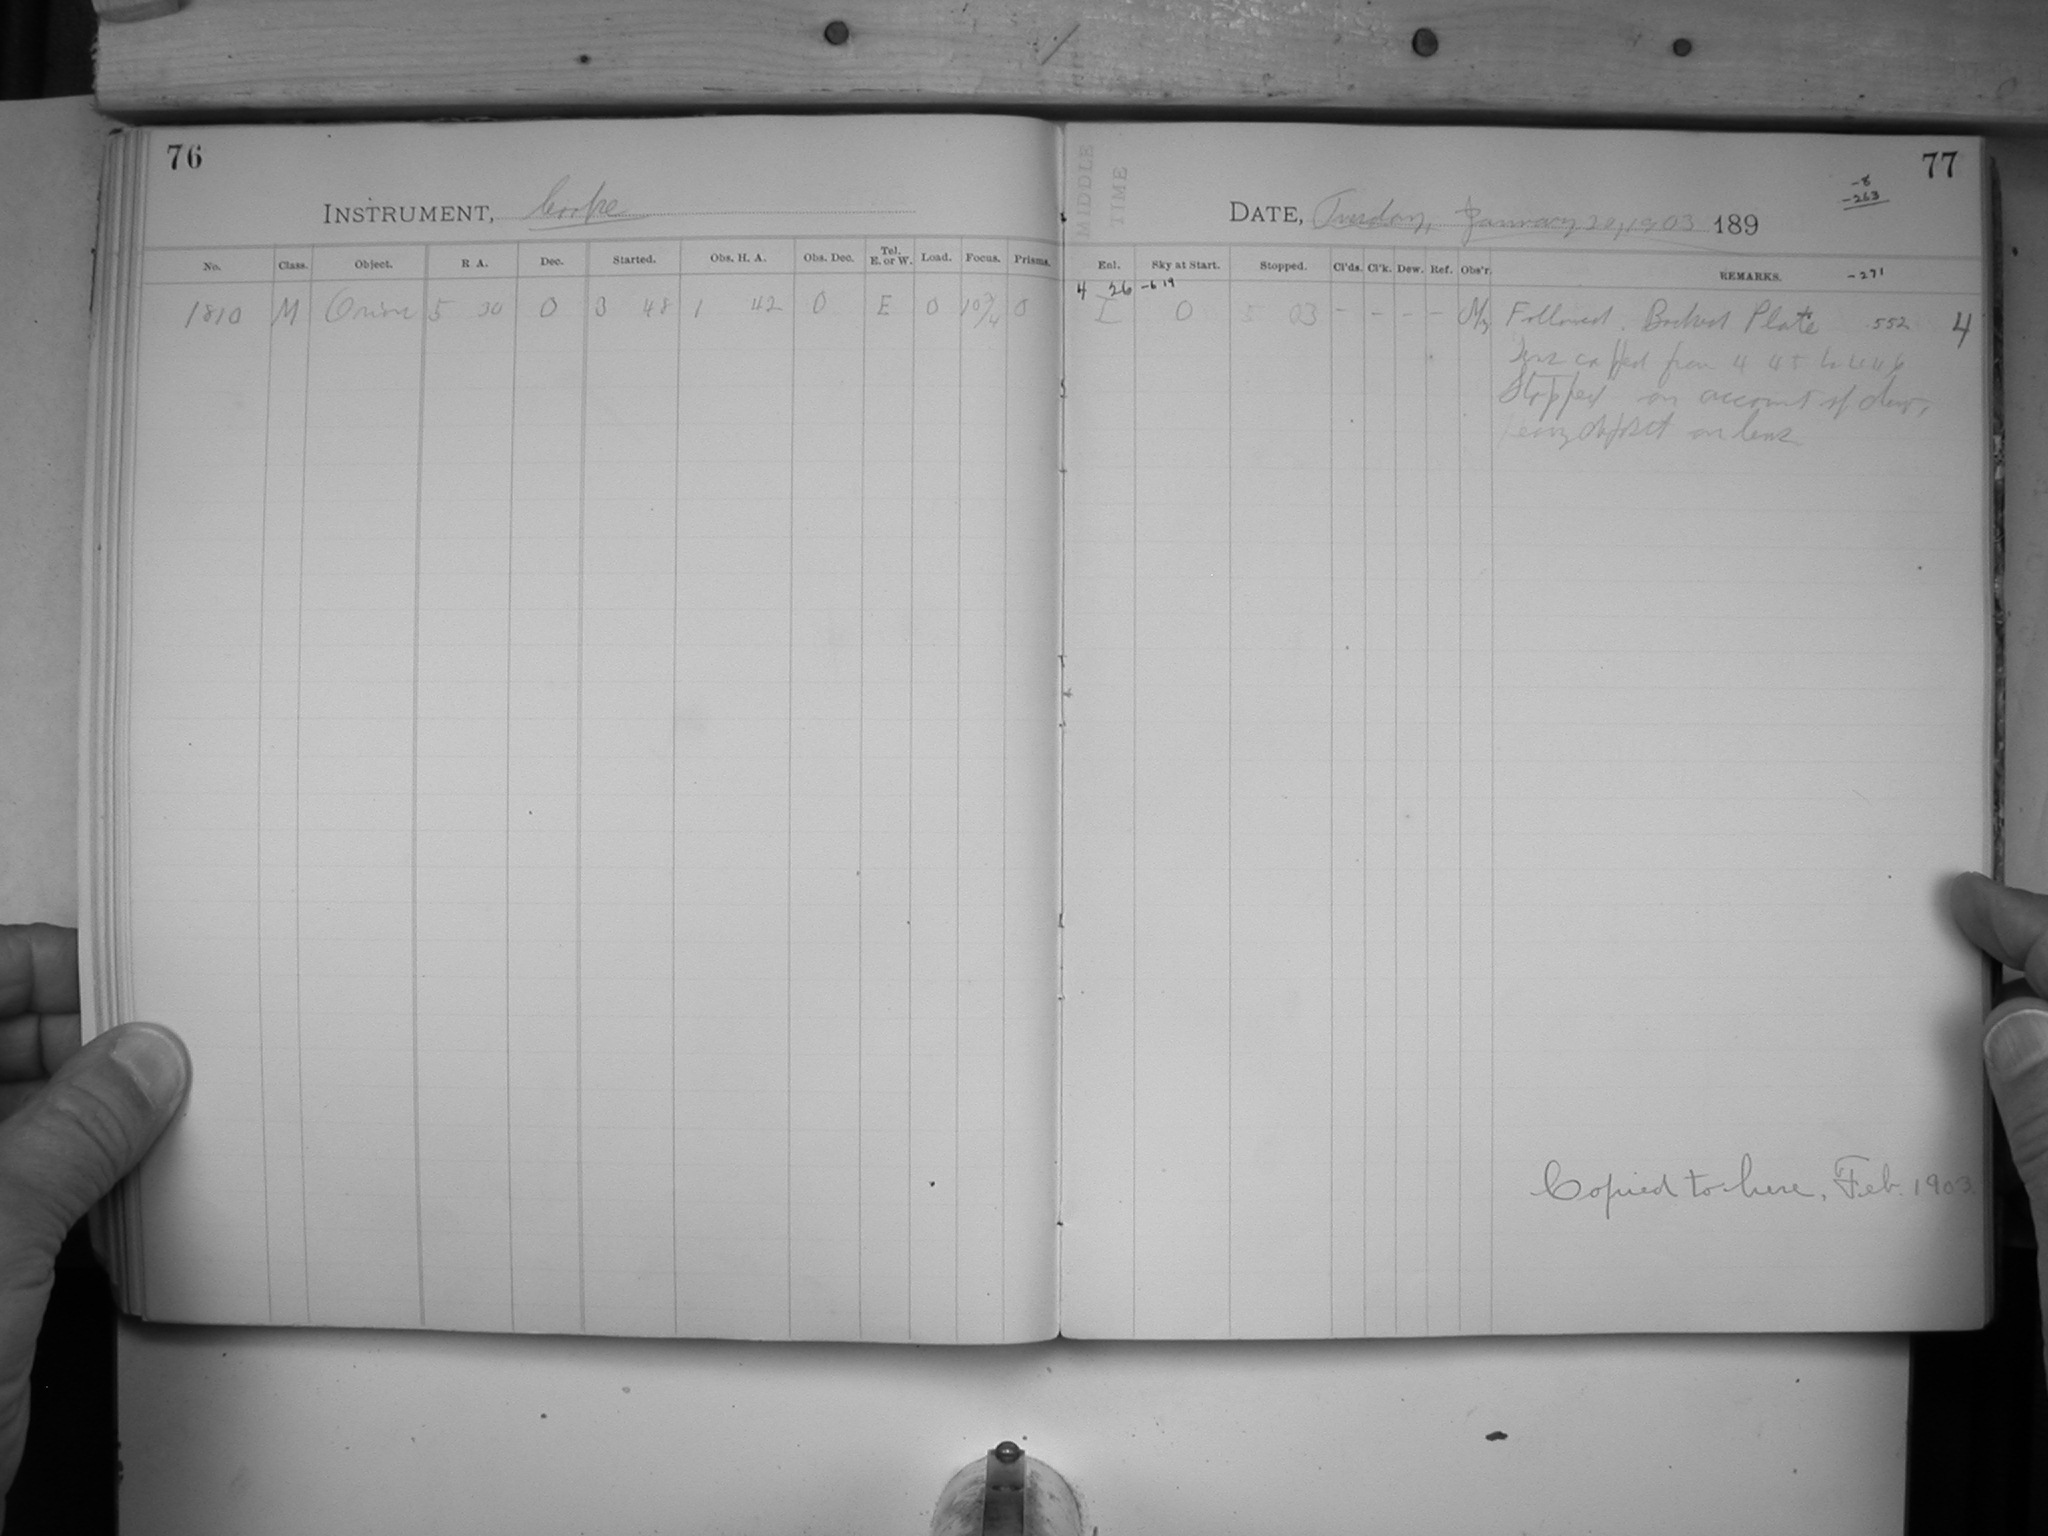 76
INSTRUMENT, Cooke
No. Class. Object. R A. Dec. Started. Obs. H. A. Obs. Dec. Tel. E. or W. Load. Focus. Prisms.
1810 M Orion 5 30 0 3 48 1 42 0 E 0 10 3/4 0
MIDDLE
TIME
77
-8
-263
DATE, Tuesday, January 20, 1903 189
Enl. Sky at Start. Stopped. Cl'ds. Cl'k. Dew. Ref. Obs'r. REMARKS. -271
4 26 -6 19
I 0 5 03 - - - - Followed. Backed Plate 552 4
lens capped from 4 45 to 4 46
Stopped on account of dew,
heavy deposit on lens
Copied to here, Feb. 1903.